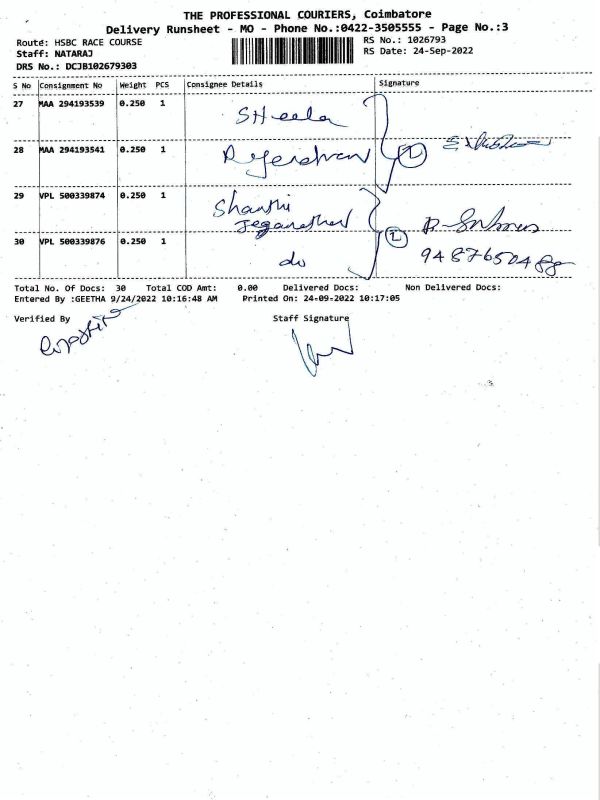 THE PROFESSIONAL COURIERS, Coimbatore
Delivery Runsheet - MO - Phone No.:0422-3505555 - Page No.:3
Route: HSBC RACE COURSE
RS No.: 1026793
Staff: NATARAJ
RS Date: 24-Sep-2022
DRS No.: DCJB102679303
S No Consignment No Weight PCS Consignee Details Signature
27 MAA 294193539 0.250 1 Sheela
28 MAA 294193541 0.250 1 2
29 VPL 500339874 0.250 1 Shanthi
Jeganathan
30 VPL 500339876 0.250 1 do 2
Total No. Of Docs: 30 Total COD Amt: 0.00 Delivered Docs: Non Delivered Docs:
Entered By :GEETHA 9/24/2022 10:16:48 AM Printed On: 24-09-2022 10:17:05
Verified By Staff Signature